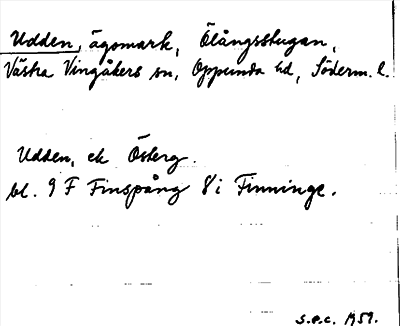 Udden, ägomark, Ölångsstugan,
Västra Vingåkers sn, Oppunda hd, Söderm. l.
Udden, ek Österg.
bl. 9 F Finspång 8 i Finninge.
S.P.C. 1959.